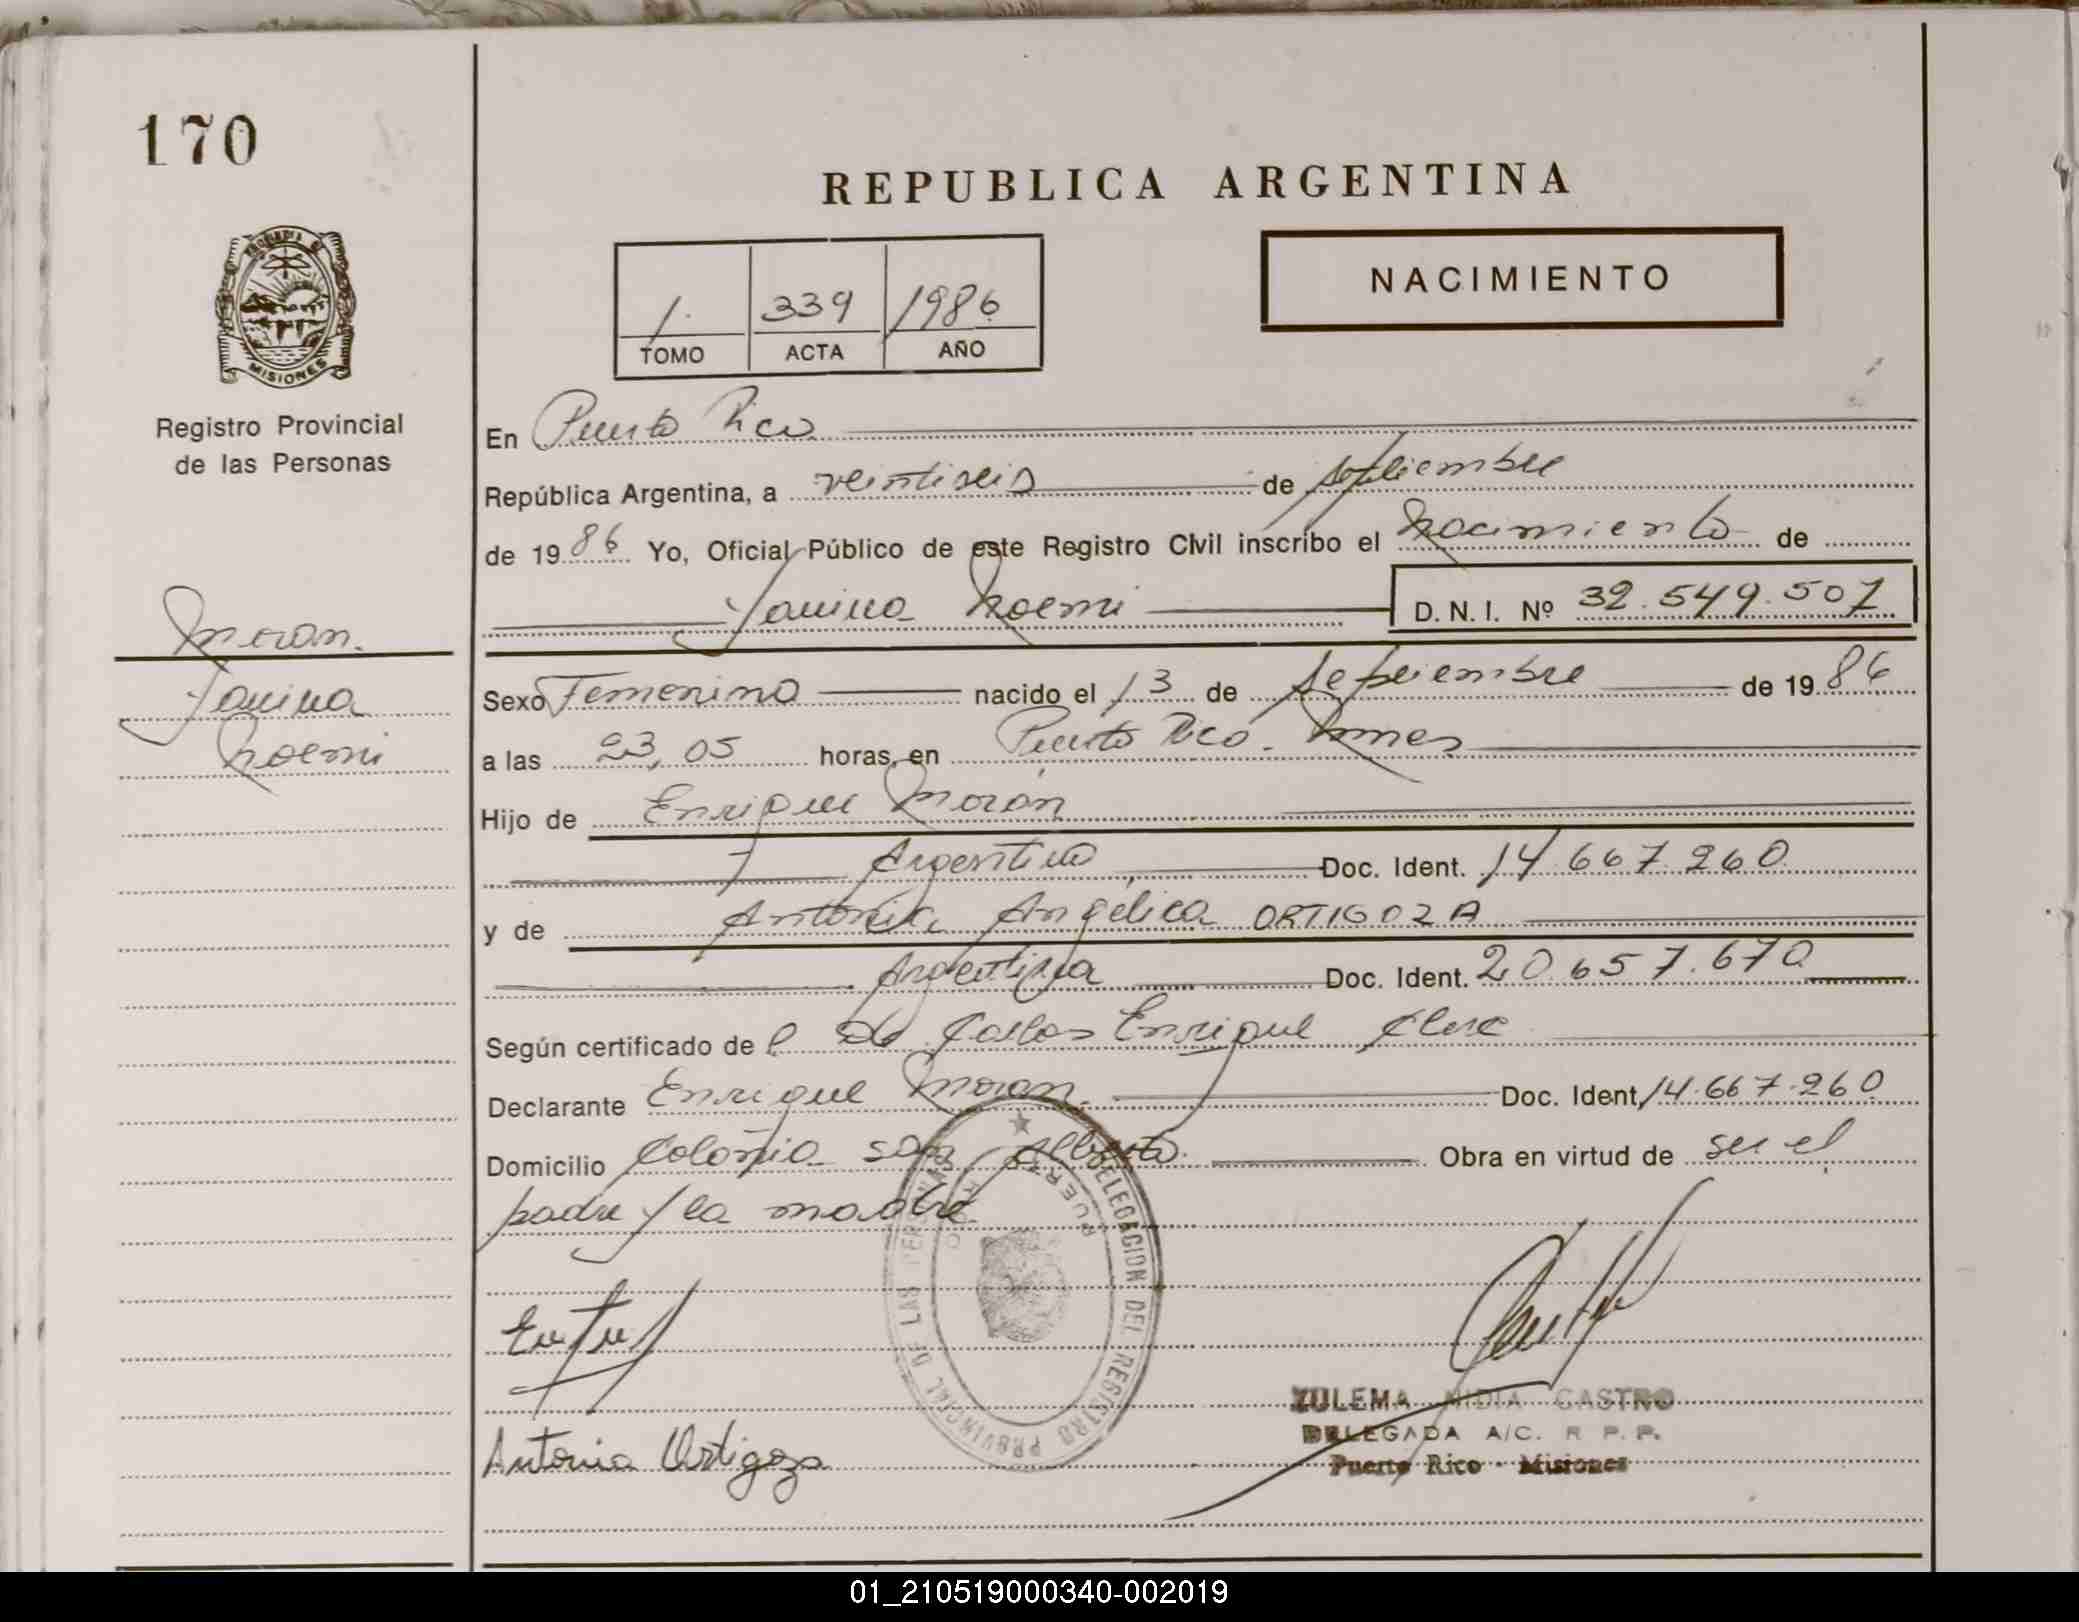 170
REPUBLICA ARGENTINA
NACIMIENTO
1. 339 1986
TOMO ACTA AÑO
MISIONES
Registro Provincial
de las Personas
En Puerto Rico
República Argentina, a veintiseis de septiembre
de 1986 Yo, Oficial Público de este Registro Civil inscribo el Nacimiento de
Yanina Noemi D.N.I. Nº 32.549.507
Moran.
Yanina
Noemi
Sexo Femenino nacido el 13 de septiembre de 1986
a las 23,05 horas, en Puerto Rico. Mnes
Hijo de Enrique Morán
Argentino Doc. Ident. 14.667.260
y de Antonia Angélica ORTIGOZA
Argentina Doc. Ident. 20.657.670
Según certificado del Dr Carlos Enrique
Declarante Enrique Moran. Doc. Ident. 14.667.260
Domicilio Colonia san Alberto. Obra en virtud de ser el
padre y la madre
DELEGACION DEL REGISTRO PROVINCIAL DE LAS PERSONAS
PUERTO RICO
Antonia Ortigoza
ZULEMA NIDIA CASTRO
DELEGADA A/C. R P. P.
Puerto Rico - Misiones
01_210519000340-002019